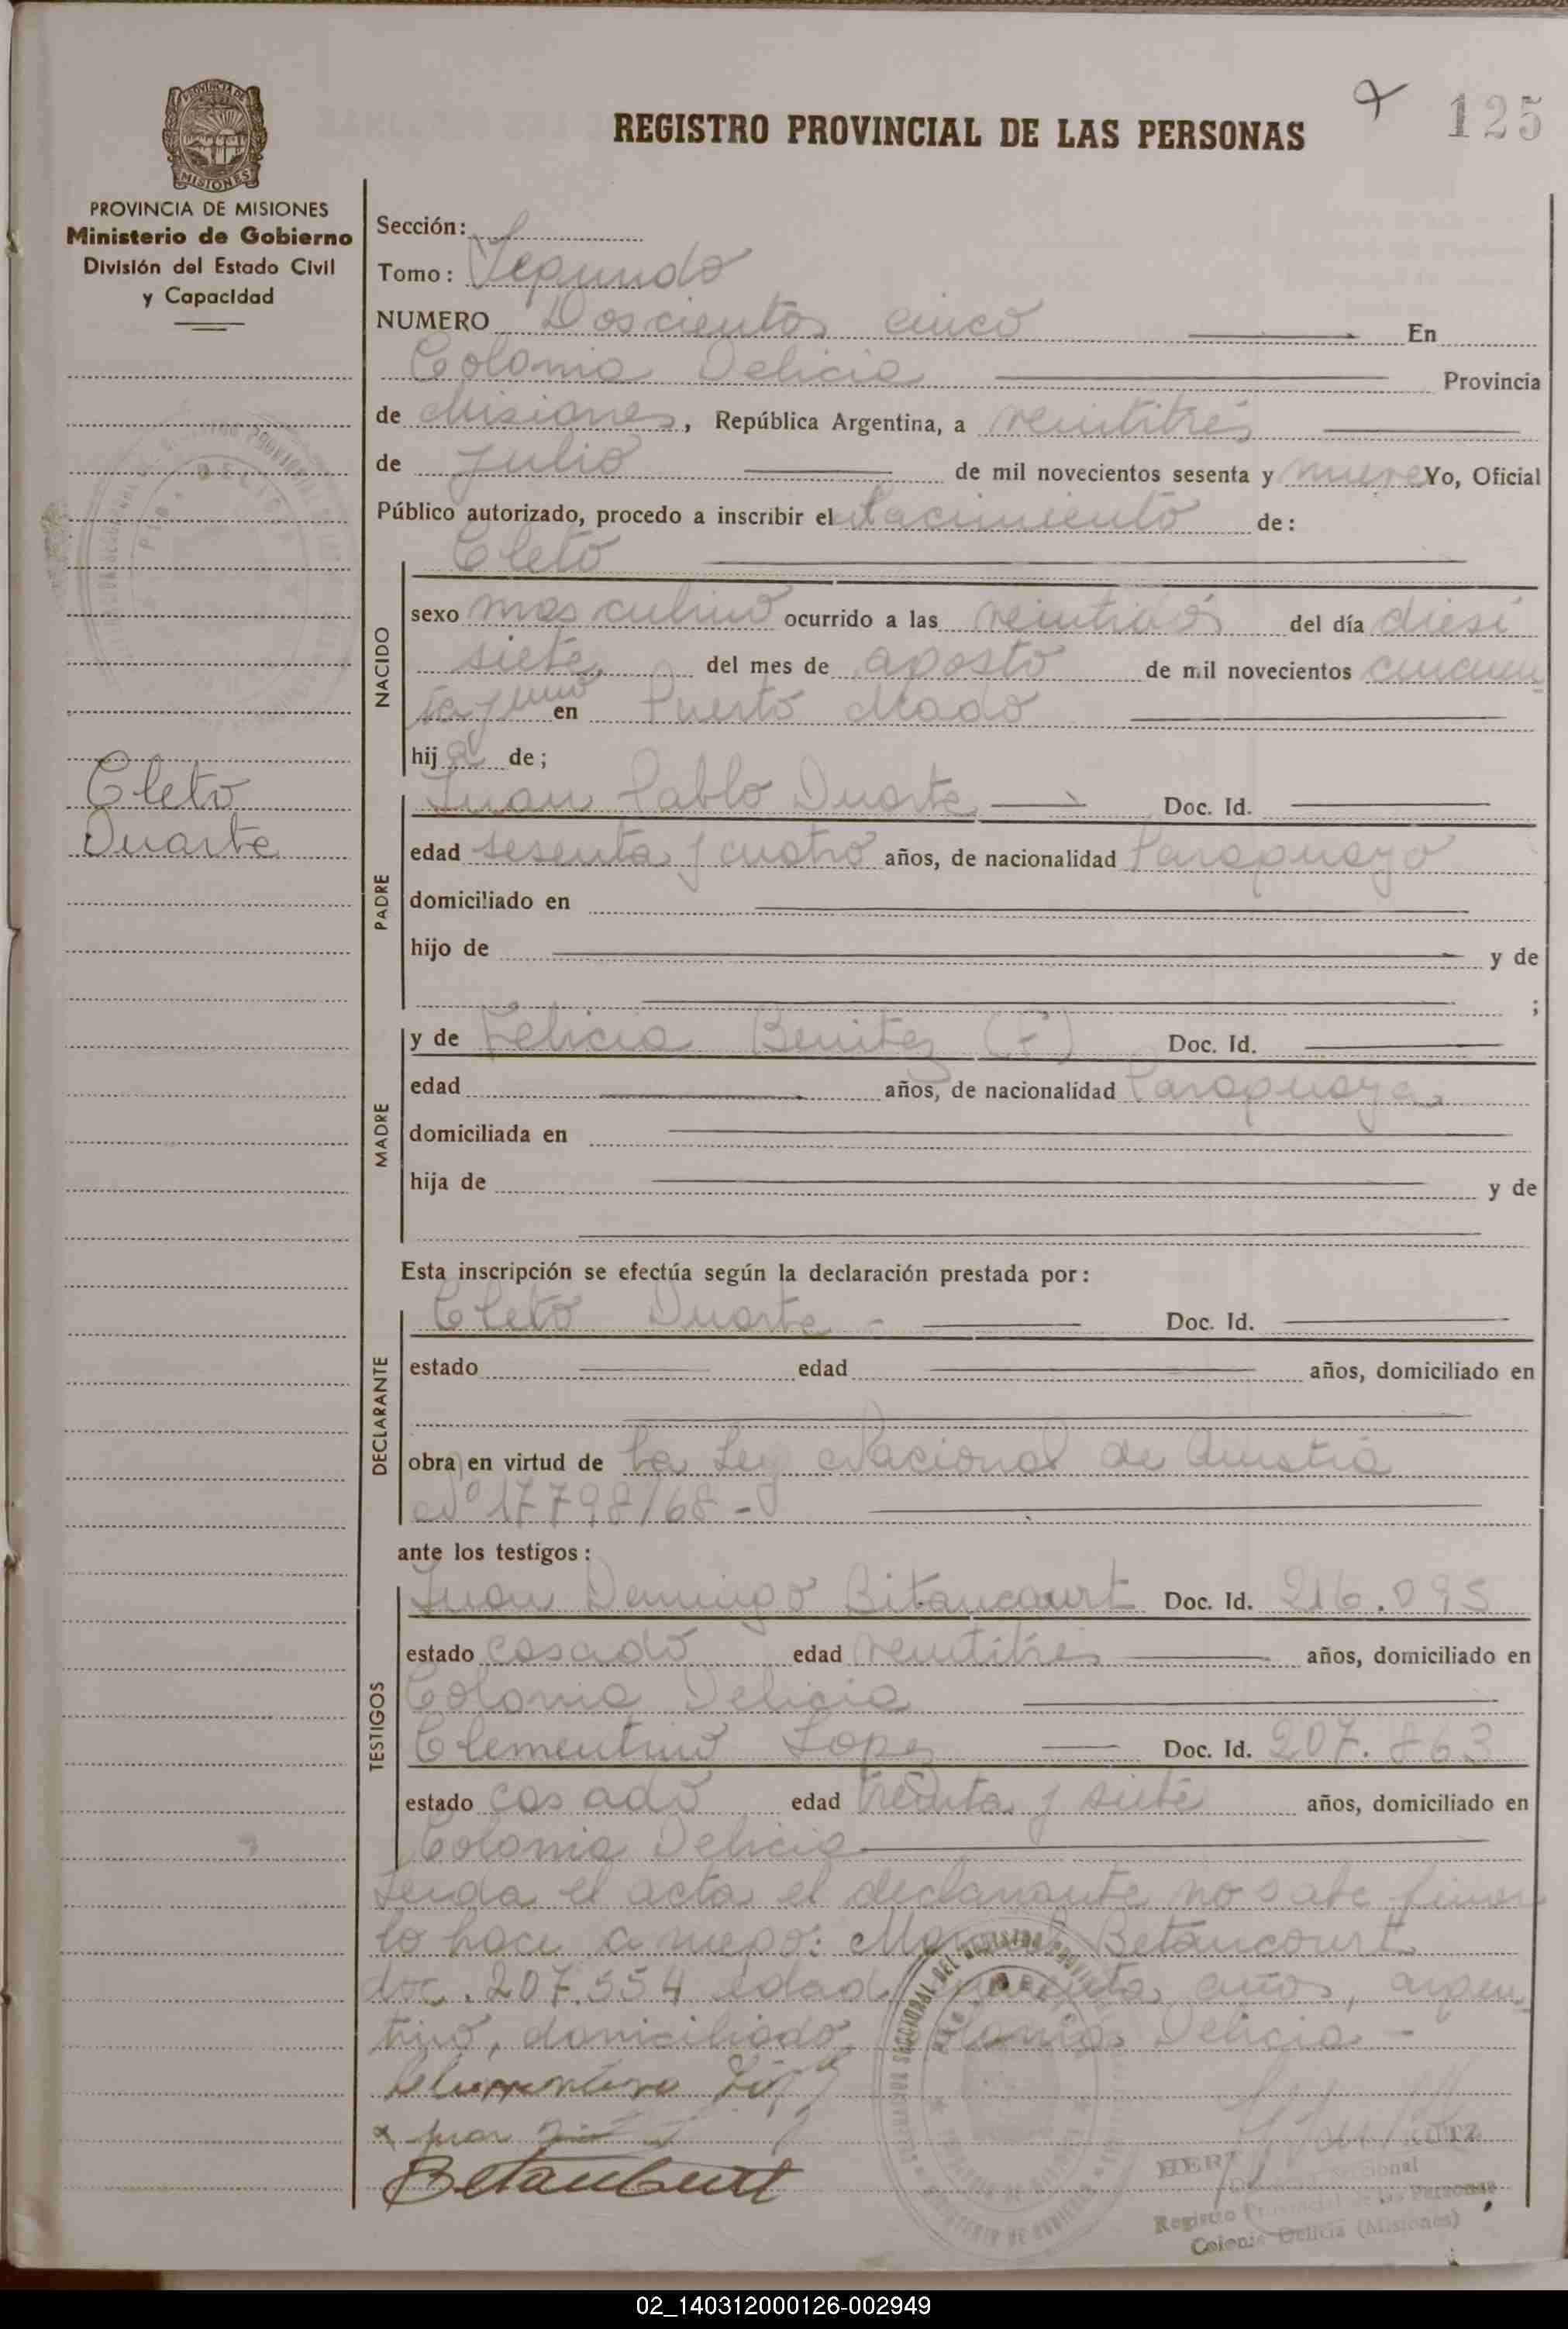 125
REGISTRO PROVINCIAL DE LAS PERSONAS
PROVINCIA DE MISIONES
Ministerio de Gobierno
División del Estado Civil
y Capacidad
Sección:
Tomo: Segundo
NUMERO Doscientos cinco En
Colonia Delicia Provincia
de Misiones, República Argentina, a veintitrés
de julio de mil novecientos sesenta y nueve Yo, Oficial
Público autorizado, procedo a inscribir el Nacimiento de:
Cleto
NACIDO
sexo masculino ocurrido a las veintidós del día diesi
siete del mes de agosto de mil novecientos cincuen
ta y uno en Puerto Mado
hij o de;
Cleto
Duarte
PADRE
Juan Pablo Duarte Doc. Id.
edad sesenta y cuatro años, de nacionalidad Paraguayo
domiciliado en
hijo de y de
;
MADRE
y de Felicia Benitez (F) Doc. Id.
edad años, de nacionalidad Paraguaya
domiciliada en
hija de y de
Esta inscripción se efectúa según la declaración prestada por:
DECLARANTE
Cleto Duarte - Doc. Id.
estado edad años, domiciliado en
obra en virtud de la Ley Nacional de Amistia
Nº 17798/68 -
ante los testigos:
TESTIGOS
Juan Domingo Bitancourt Doc. Id. 216.095
estado casado edad veintitrés años, domiciliado en
Colonia Delicia
Clementino Lopez Doc. Id. 207.863
estado casado edad treinta y siete años, domiciliado en
Colonia Delicia
Leida el acta el declarante no sabe firmar
lo hace a ruego: Betancourt
doc. 207.554 edad años, argen
tino, domiciliado Colonia Delicia -
Clementino
Betancourt
Registro Provincial de las Personas
Colonia Delicia (Misiones)
02_140312000126-002949